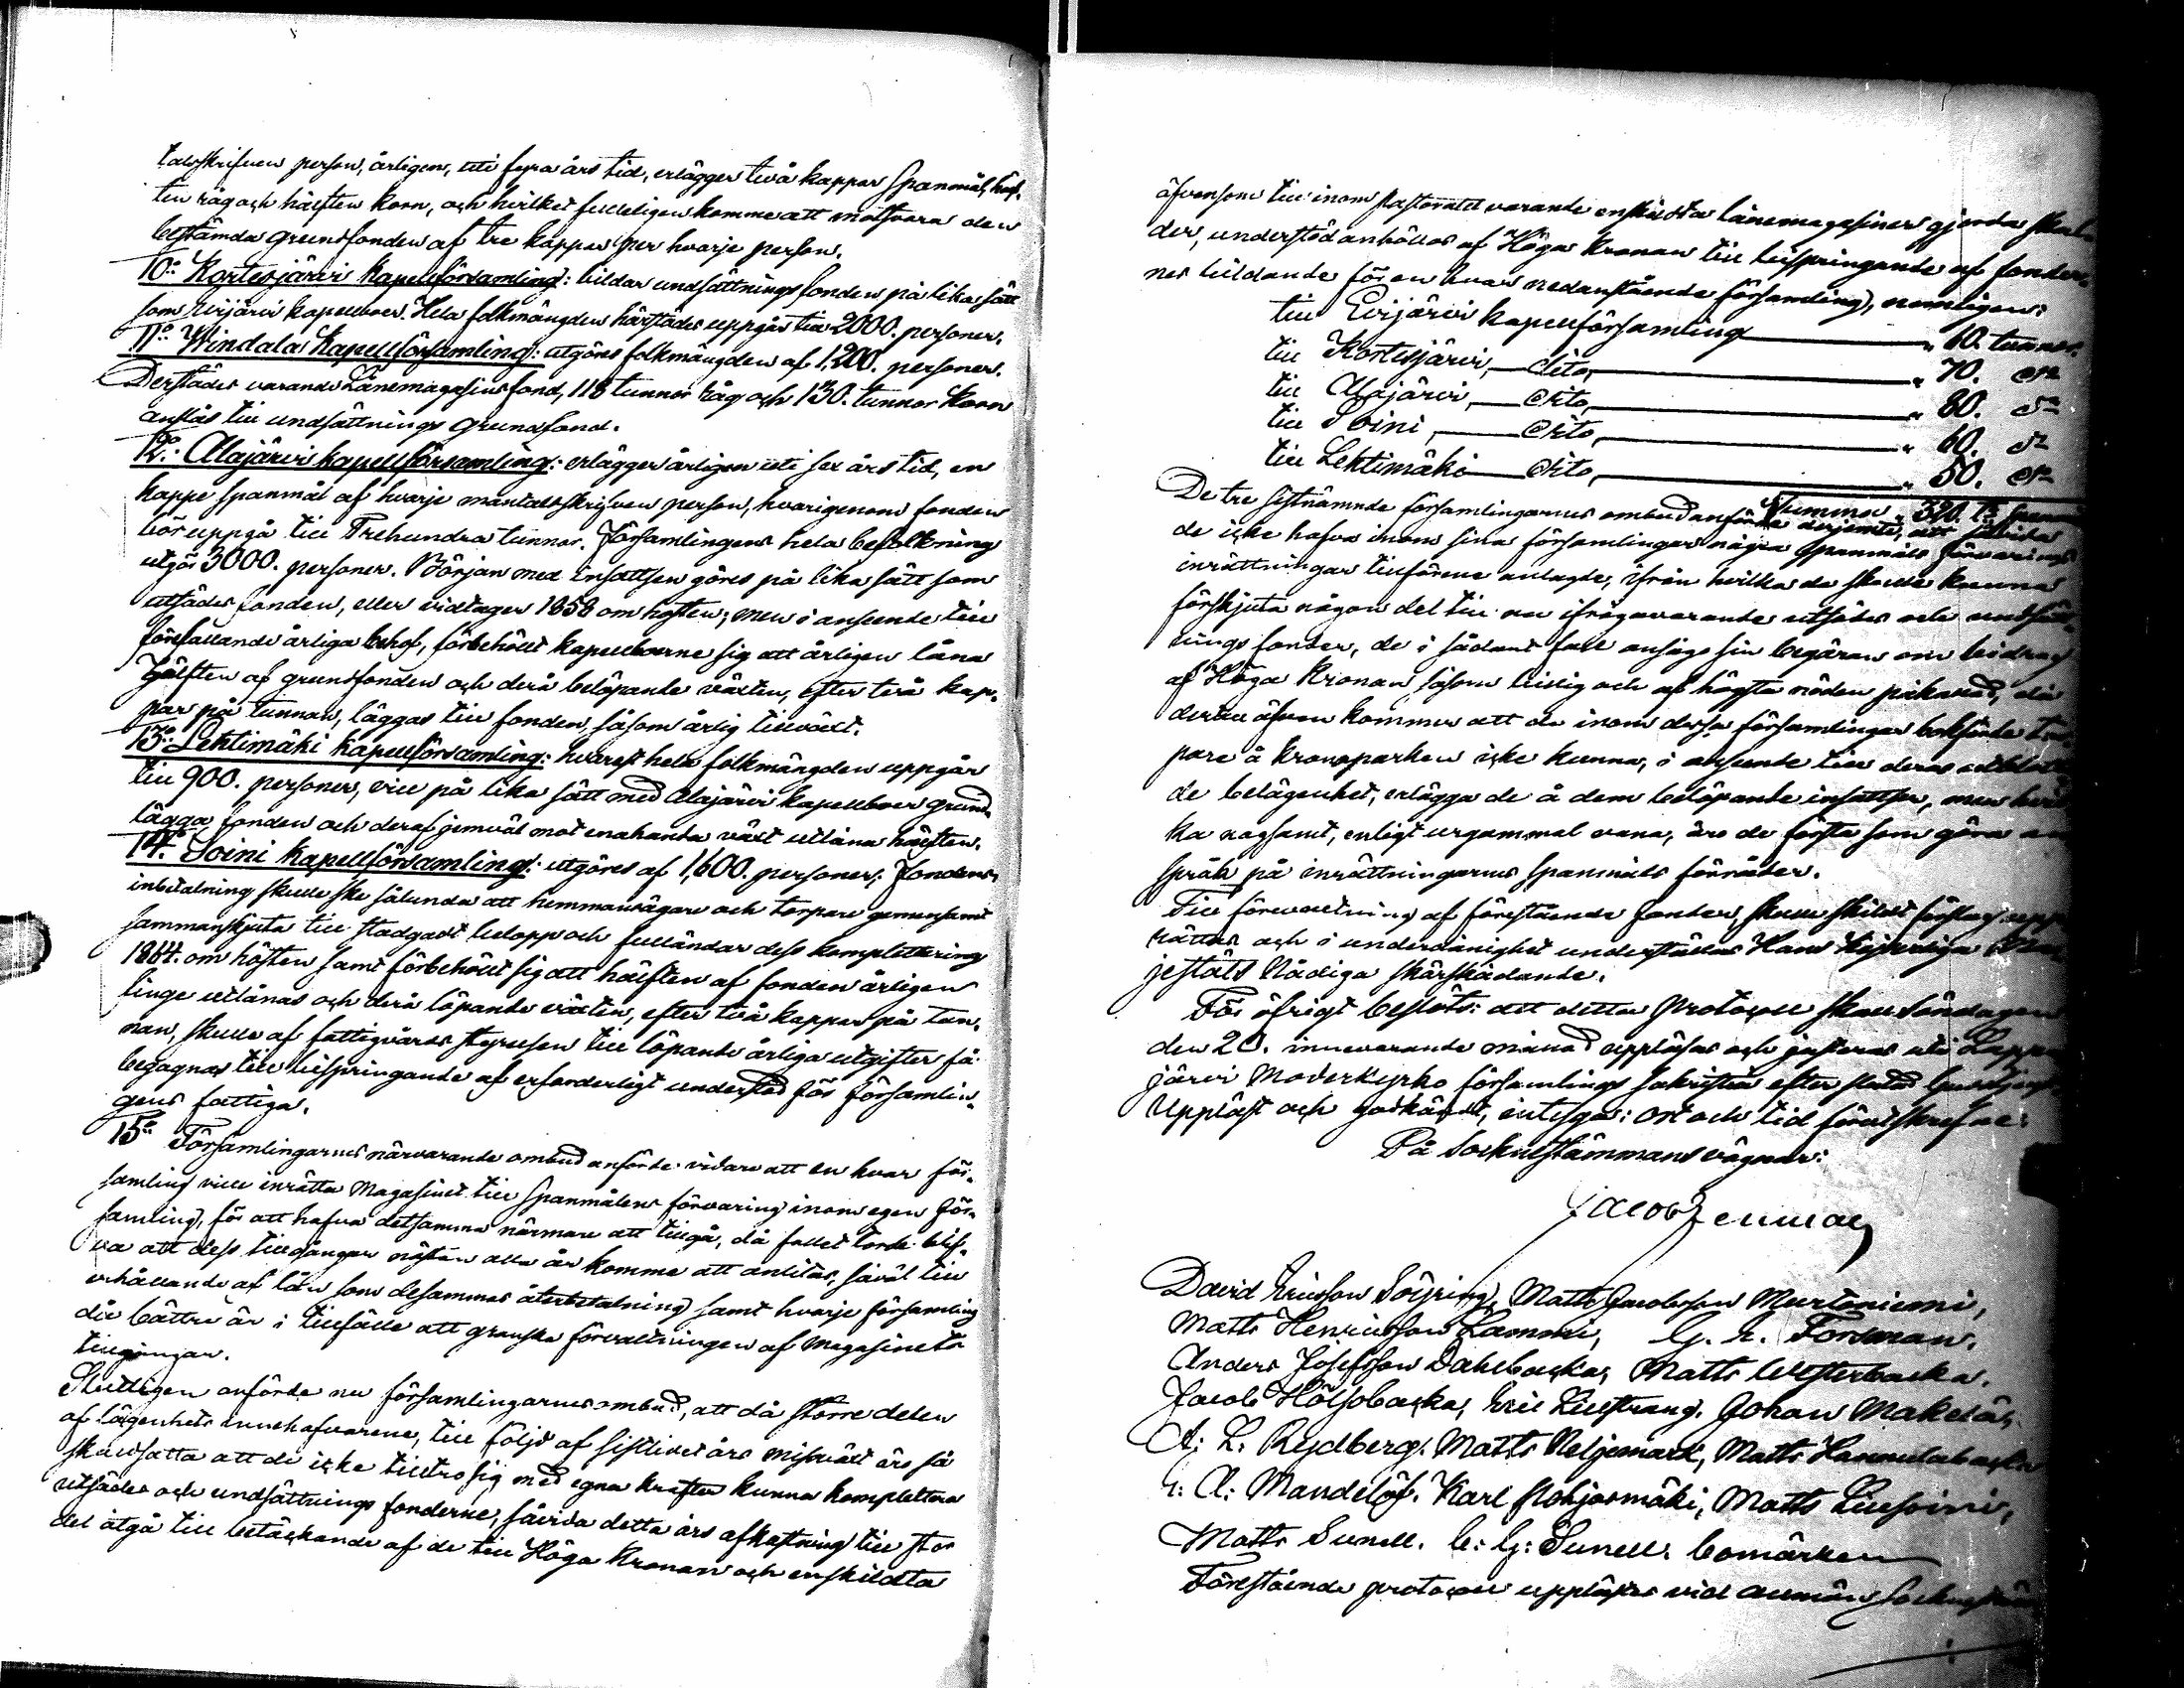 talsskrifven person, årligen, uti fyra års tid, erlägger två kappar Spanmål, hälf-
ten råg och hälften korn, och hvilket fulleligen komme att motsvara den
bestämda grundfonden af tre kappar per hvarje person.
10o Kortesjärvi Kapellförsamling: bildar undsättnings fonden på lika sätt
som Evijärvi kapellboer. Hela folkmängden härstädes uppgår till 2000. personer.
11o Windala Kapellförsamling: utgöres folkmängden af 1,200. personer.
Derstädes varande Lånemagasins fond, 118 tunnor råg och 130. tunnor Korn
anslås till undsättnings grundfond.
12o Alajärvi kapellförsamling: erlägger årligen uti sex års tid, en
kappe spanmål af hvarje mantalsskrifven person, hvarigenom fonden
bör uppgå till Trehundra tunnor. Församlingens hela befolkning
utgör 3000. personer. Början med insattsen göres på lika sätt som
utsädes fonden, eller vidtager 1858 om hösten; men i anseende till
förefallande årliga behof, förbehöllt kapellboerne sig att årligen låna
Hälften af grundfonden och derå belöpande växten, efter två kap-
par på tunnan, läggas till fonden, såsom årlig tillväxt.
13o Lehtimäki kapellförsamling: hvarest hela folkmängden uppgår
till 900. personer, vill på lika sätt med Alajärvi kapellboer grund-
lägga fonden och deraf jemväl mot enahanda växt utlåna hälften.
14o Soini Kapellförsamling: utgöres af 1,600. personer; fondens
inbetalning skulle ske sålunda att hemmansägare och torpare gemensamt
sammanskjuta till stadgadt belopp och fulländar dess komplettering
1864. om hösten samt förbehöllt sig att hälften af fonden årligen
linge utlånas och derå löpande växten, efter två kappar på tun-
nan, skulle af fattigvårds styrelsen till löpande årliga utgifter få
begagnas till bespringande af erforderligt understöd för församlin-
gens fattiga.
15o Församlingarnes närvarande ombud anförde vidare att en hvar för-
samling ville inrätta Magasinet till Spanmålens förvaring inom egen för-
samling, för att hafva detsamma närmare att tillgå, då fallet torde blif-
va att dess tillgångar nästan alla år komme att anlitas, såväl till
erhållande af lån som desammas återbetalning samt hvarje församling
då bättre är i tillfälle att granska förvaltningen af magasinets
tillgångar.
Slutligen anförde nu församlingarnes ombud, att då större delen
af lägenhets innehafvarene, till följd af sistlidet års missväxt äro så
skuldsatta att de icke tilltro sig med egna krafter kunna komplettera
utsädes och undsättnings fonderne, såvida detta års afkastning till stor
del åtgå till betäckande af de till Höga Kronan och enskildta
äfvensom till inom Pastoratet varande enskildta lånemagasiner gjorda skul-
der, understöd anhölles af Höga Kronan till bispringande af fonder-
nes bildande för en hvar nedanstående församling, nemligen:
till Evijärvi kapellförsamling " 60. tunnor.
till Kortesjärvi, dito, " 70. do
till Alajärvi, dito, " 80. do
till Soini, dito, " 60. do
till Lehtimäki dito, " 50. do
Summa " 320. Tr
De tre sistnämnde församlingarnes ombud anförde derjemte, att såvida
de icke hafva inom sina församlingar några spanmåls förvarings
inrättningar tillförene anlagde, ifrån hvilka de skulle kunna
förskjuta någon del till nu ifrågavarande utsädes och undsätt-
nings fonder, de i sådant fall ansågo sin begäran om bidrag
af Höga Kronan såsom billig och af högsta nöden påkallad, då
dertill äfven kommer att de inom dessa församlingar bosatte tor-
pare å kronoparken icke kunna, i anseende till deras utblotta-
de belägenhet, erlägga de å dem belöpande insattser, men hvil-
ka nogsamt, enligt urgammal vana, äro de första som göra an-
språk på inrättningarnes spanmåls förråder.
Till förevaltning af förestående fonder, skulle skildt förslag upp-
rättas och i underdånighet underställas Hans Kejserliga Ma-
jestäts Nådiga skärskådande.
För öfrigt beslöts: att detta Protocoll skall Söndagen
den 20. innevarande månad uppläsas och justeras uti Lappa-
järvi Moderkyrko församlings Sakristia efter slutad Gudstjenst
Uppläst och godkändt, intyga: Ort och tid förutskrefne:
På Sockenstämmans vägnar:
Jacob
David Ericsson Söyring, Matts Jacobsson Murtoniemi,
Matts Henricsson Lammi, G. E. Forsman.
Anders Josefsson Dahlbacka, Matts Westerbacka.
Jacob Hölsobacka, Eric Lillstrang. Johan Makelä,
A. L. Rydberg. Matts Neljemark, Matts Hannulabacka
A. Mandelöf. Karl Pohjosmäki, Matts Lillsoini,
Matts Sunell. C. G. Sunell. bomärken
Förestående protocoll upplästes vid allmän Sockenstäm